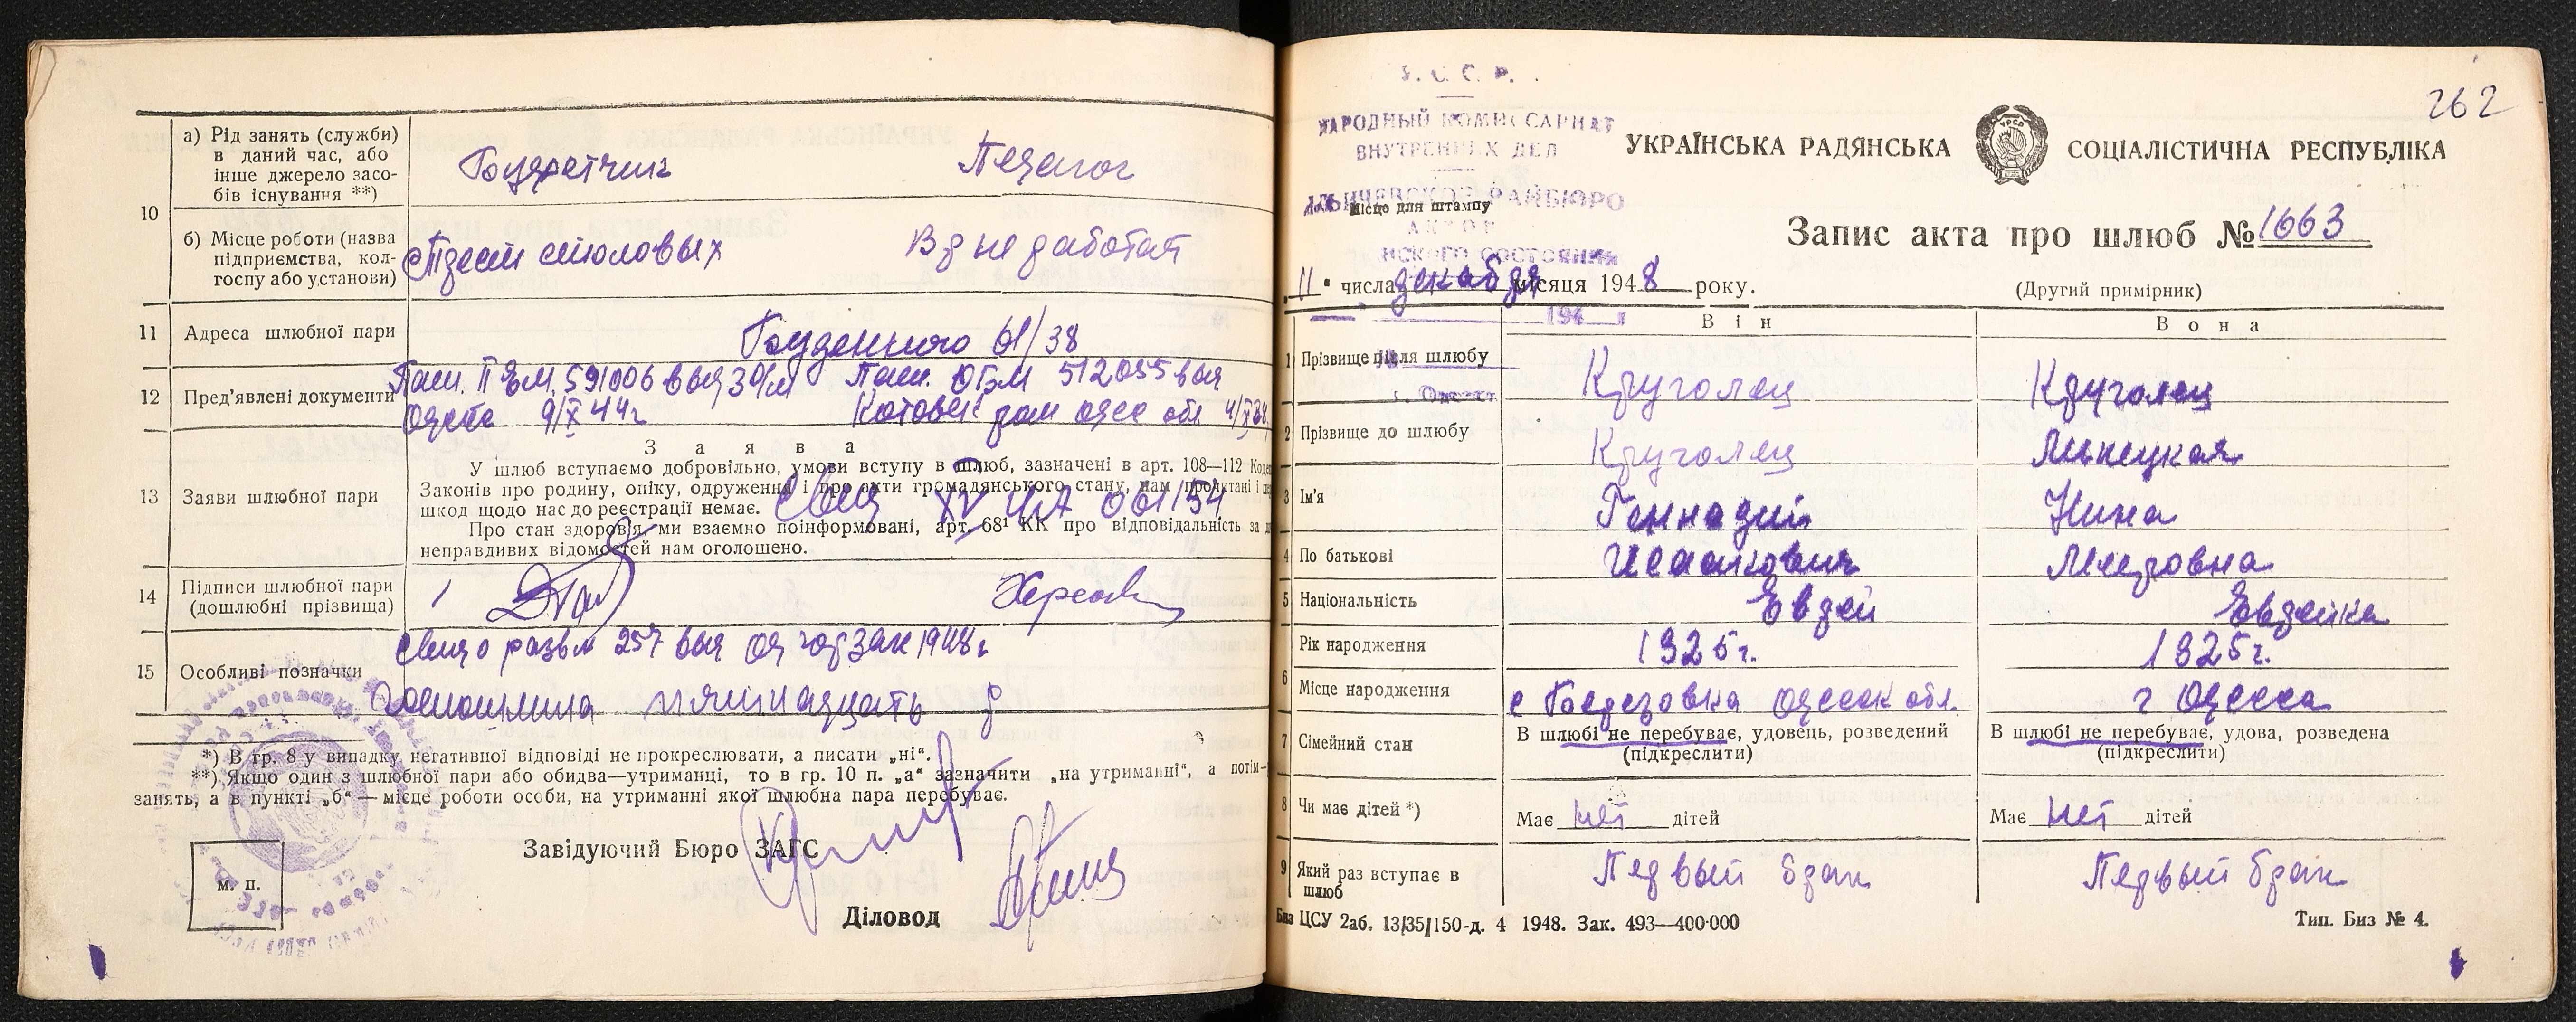 10
а) Рід занять (служби)
в даний час, або
інше джерело засо-
бів існування **)
Педагог
б) Місце роботи (назва
підприємства, кол-
госпу або установи)
столовых
не работает
11 Адреса шлюбної пари
Буденного 61/38
12 Пред'явлені документи
Пасп. 591006 выд 3 О/м
Одесса 9/X 44г
Пасп. 512055 выд
Котовск одес обл
13 Заяви шлюбної пари
З а я в а
У шлюб вступаємо добровільно, умови вступу в шлюб, зазначені в арт. 108—112
Законів про родину, опіку, одруження і про акти громадянського стану, нам прочитані і
шкод щодо нас до реєстрації немає.
Про стан здоров'я ми взаємно поінформовані, арт. 68¹ КК про відповідальність за
неправдивих відомостей нам оголошено.
061154
14 Підписи шлюбної пари
(дошлюбні прізвища)
15 Особливі позначки
257 1948г
пятнадцать р
*) В гр. 8 у випадку негативної відповіді не прокреслювати, а писати „ні“.
**) Якщо один з шлюбної пари або обидва—утриманці, то в гр. 10 п. „а“ зазначити „на утриманні“, а потім—
занять, а в пункті „б“ — місце роботи особи, на утриманні якої шлюбна пара перебуває.
Завідуючий Бюро ЗАГС
м. п.
Діловод
262
У. С. С. Р.
НАРОДНЫЙ КОМИССАРИАТ
ВНУТРЕННИХ ДЕЛ
ИЛЬИЧЕВСКОЕ РАЙБЮРО
Місце для штампу
АКТОВ
СОСТОЯНИЯ
194
УКРАЇНСЬКА РАДЯНСЬКА СОЦІАЛІСТИЧНА РЕСПУБЛІКА
Запис акта про шлюб № 1663
„11“ числа декабря місяця 1948 року.
(Другий примірник)
В і н
В о н а
1 Прізвище після шлюбу Круголец Круголец
2 Прізвище до шлюбу Круголец Липецкая
3 Ім'я Геннадий Нина
4 По батькові Исаакович
5 Національність Еврей Еврейка
6 Рік народження 1925г. 1925г.
Місце народження Одесск обл. г Одесса
7 Сімейний стан
В шлюбі не перебуває, удовець, розведений
(підкреслити)
В шлюбі не перебуває, удова, розведена
(підкреслити)
8 Чи має дітей *) Має нет дітей Має нет дітей
9 Який раз вступає в
шлюб
Первый брак Первый брак
Биз ЦСУ 2аб. 13/35/150-д. 4 1948. Зак. 493—400·000
Тип. Биз № 4.